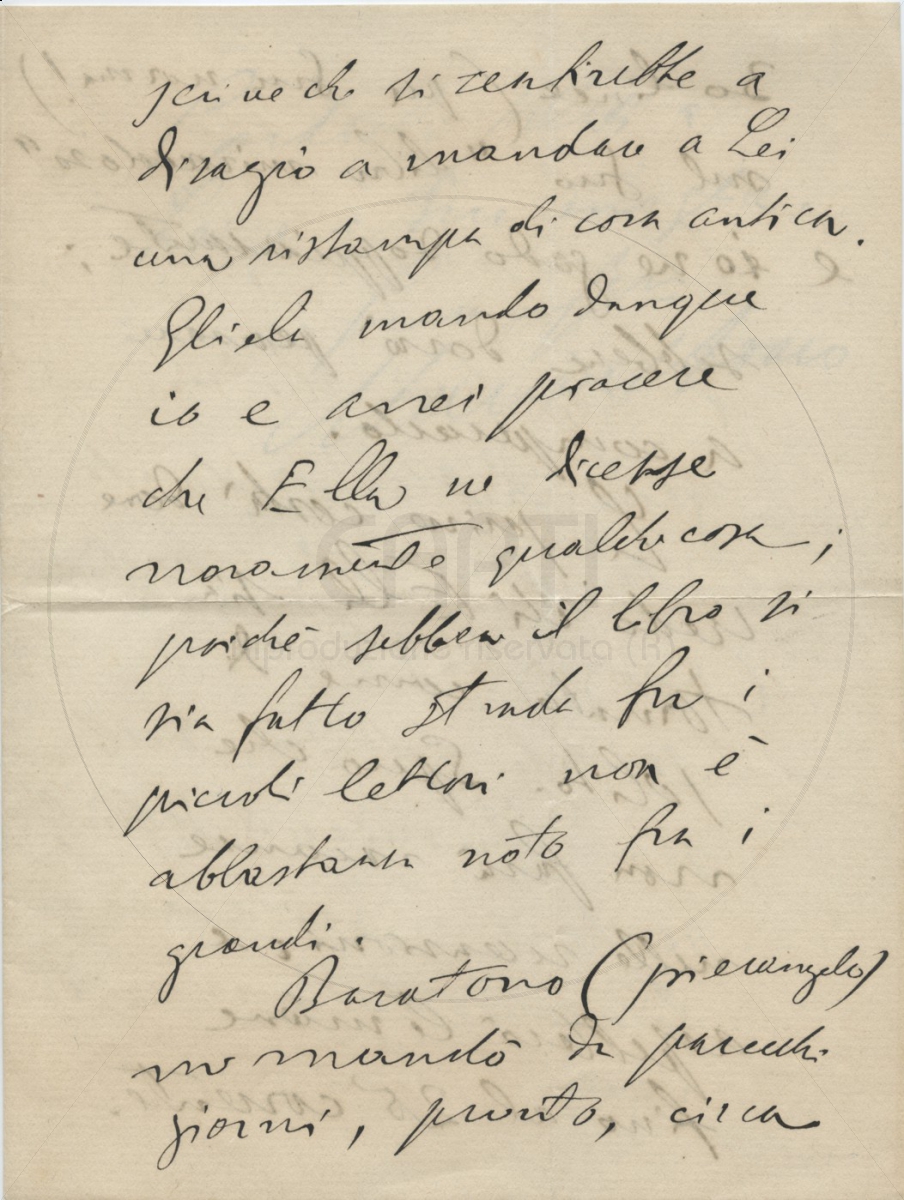 scrive che si sentirebbe a
disagio a mandare a Lei
una ristampa di cosa antica.
Gliela mando dunque
io e avrei piacere
che Ella ne dicesse
novamente qualche cosa;
poichè sebbene il libro si
sia fatto strada fra i
piccoli lettori non è
abbastanza noto fra i
grandi.
Baratono (pierangelo)
mi mandò da parecchi
giorni, pronto, circa
SARTI
riproduzione riservata (R)